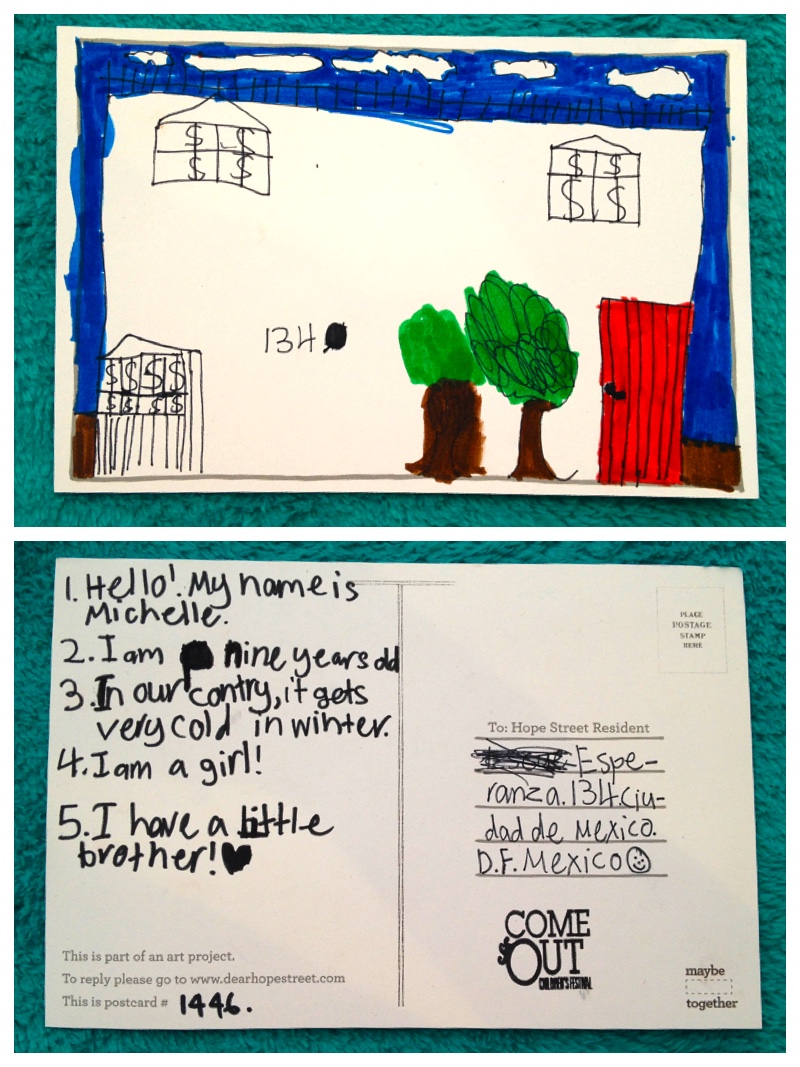 $ $
$ $
$ $
$ $
134
$ $ $ $
$ $ $ $
1. Hello! My name is
Michelle.
2. I am nine years old
3. In our contry, it gets
very cold in winter.
4. I am a girl!
5. I have a little
brother!
This is part of an art project.
To reply please go to www.dearhopestreet.com
This is postcard # 1446.
PLACE
POSTAGE
STAMP
HERE
To: Hope Street Resident
Espe-
ranza. 134. Ciu-
dad de Mexico.
D.F. Mexico
COME
OUT
CHILDREN'S FESTIVAL
maybe
together